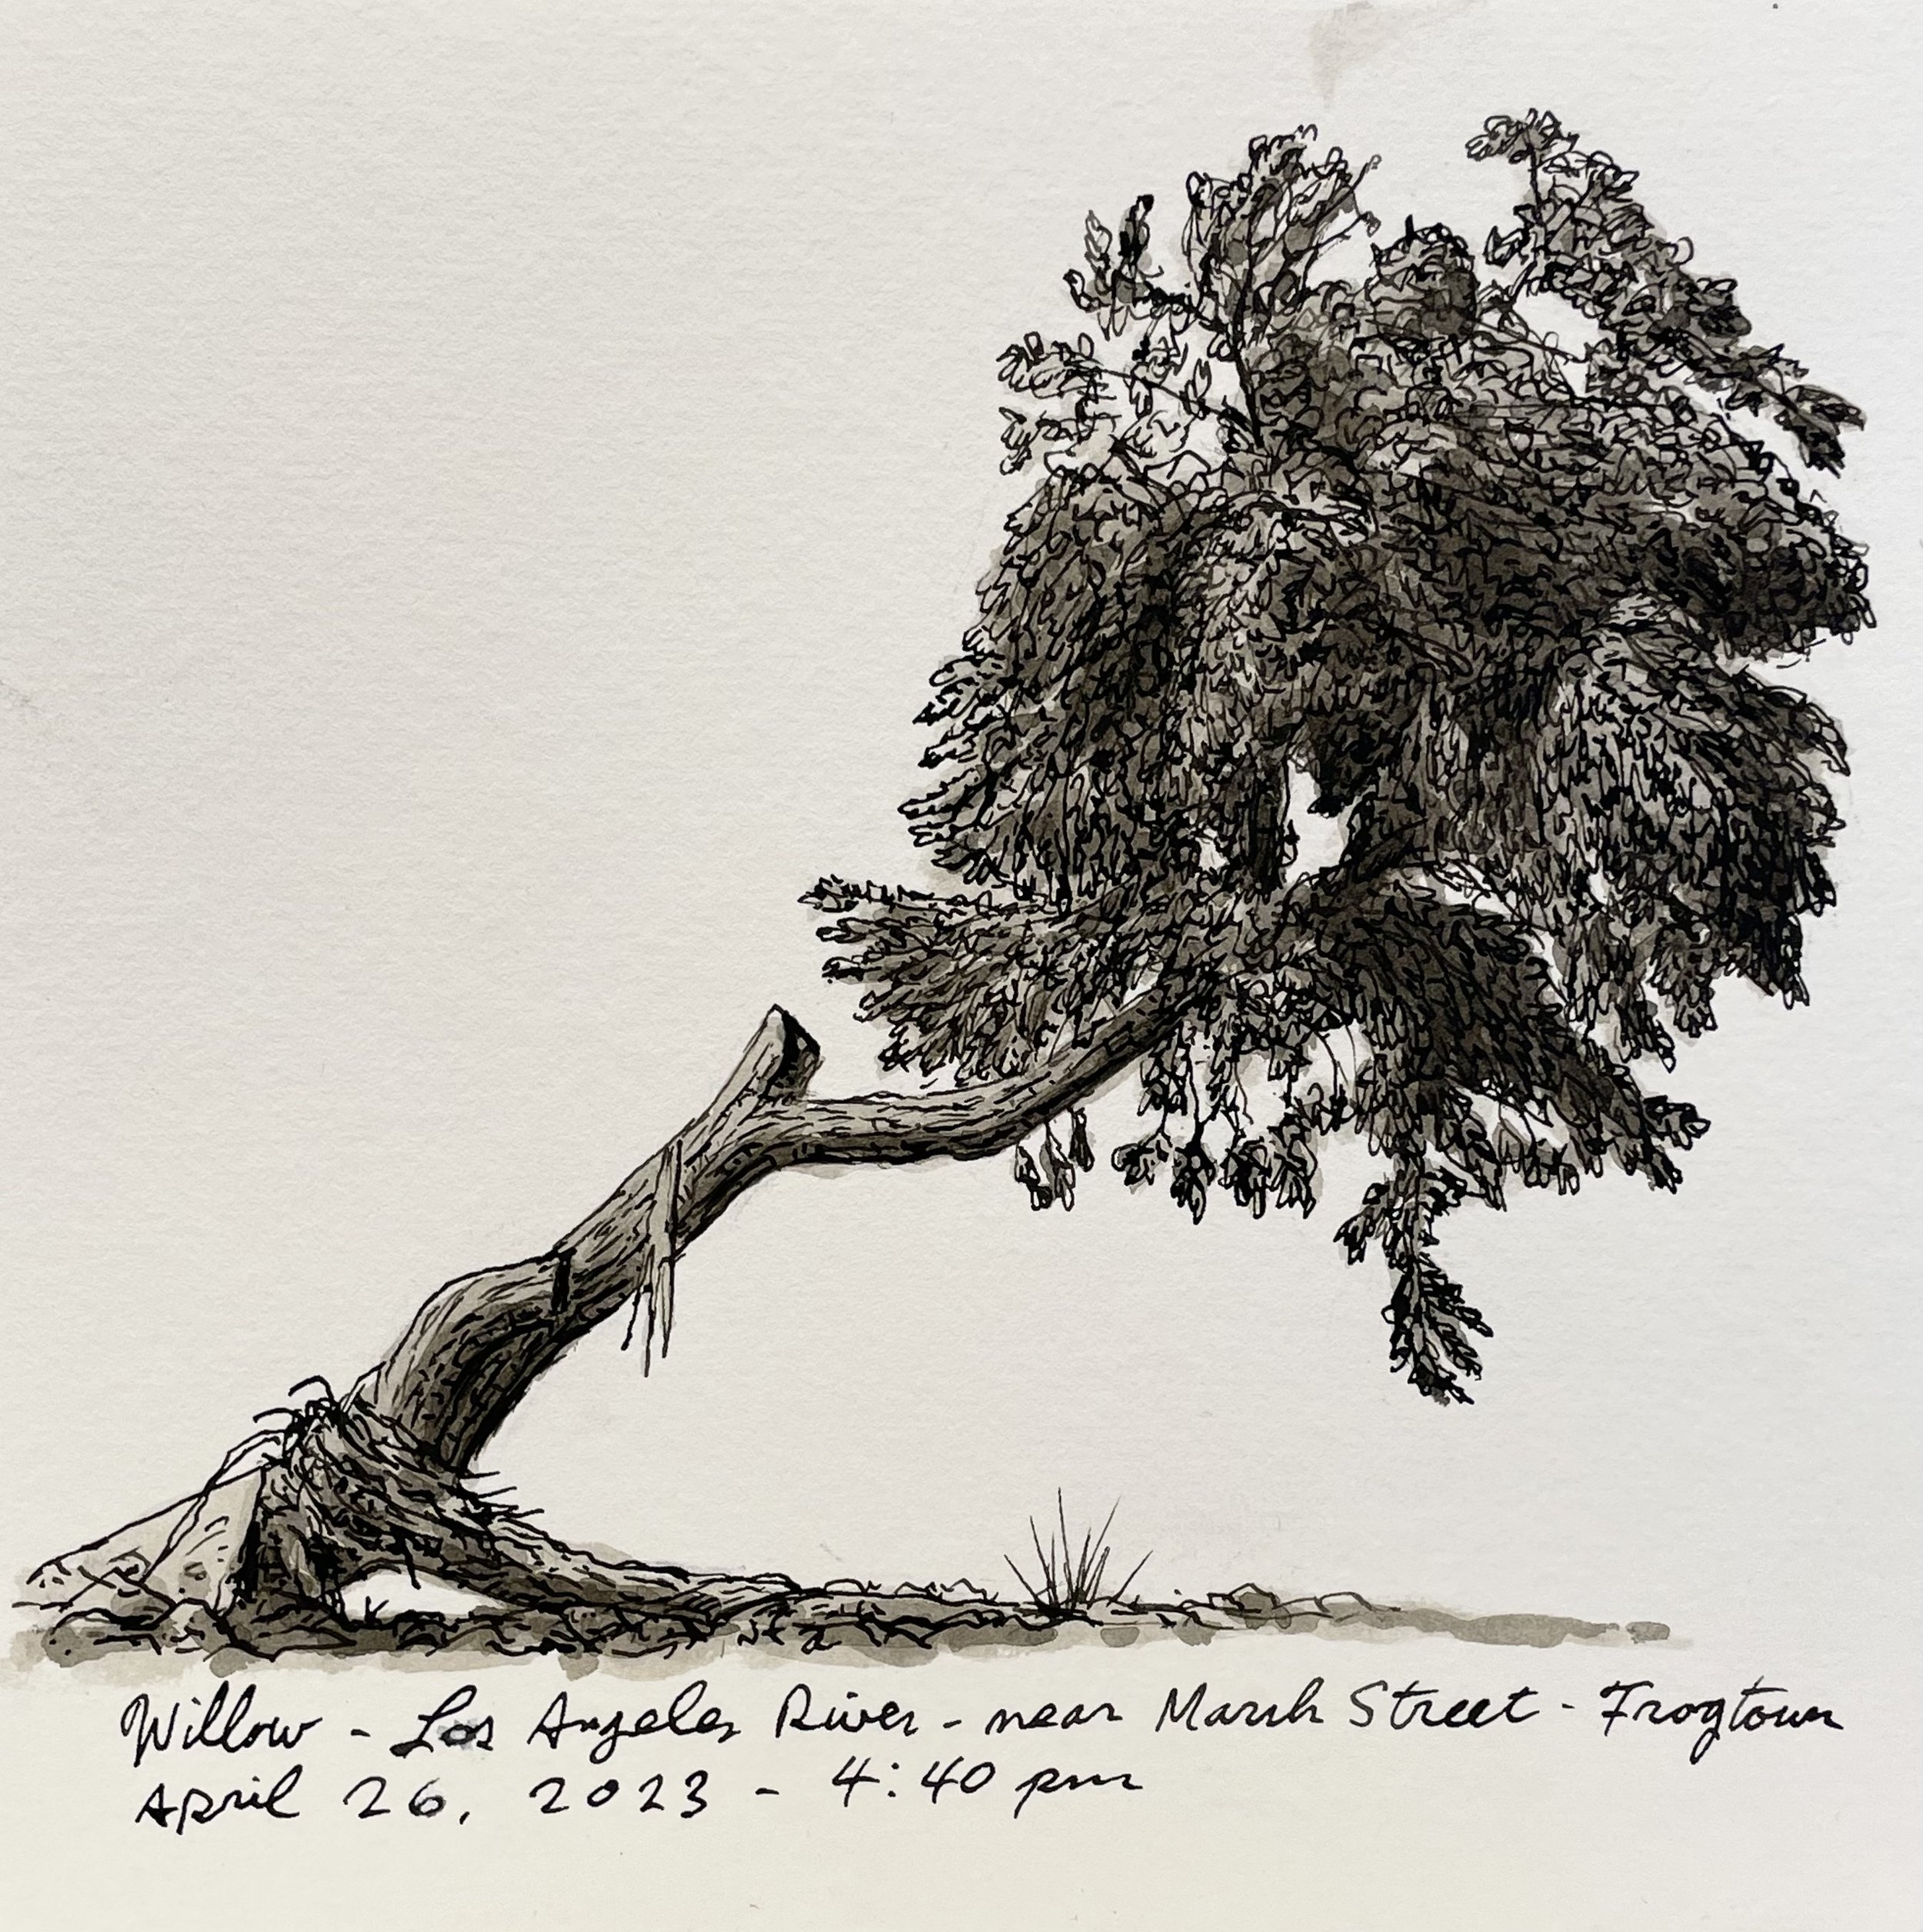 Willow - Los Angeles River - near Marsh Street - Frogtown
April 26, 2023 - 4:40 pm